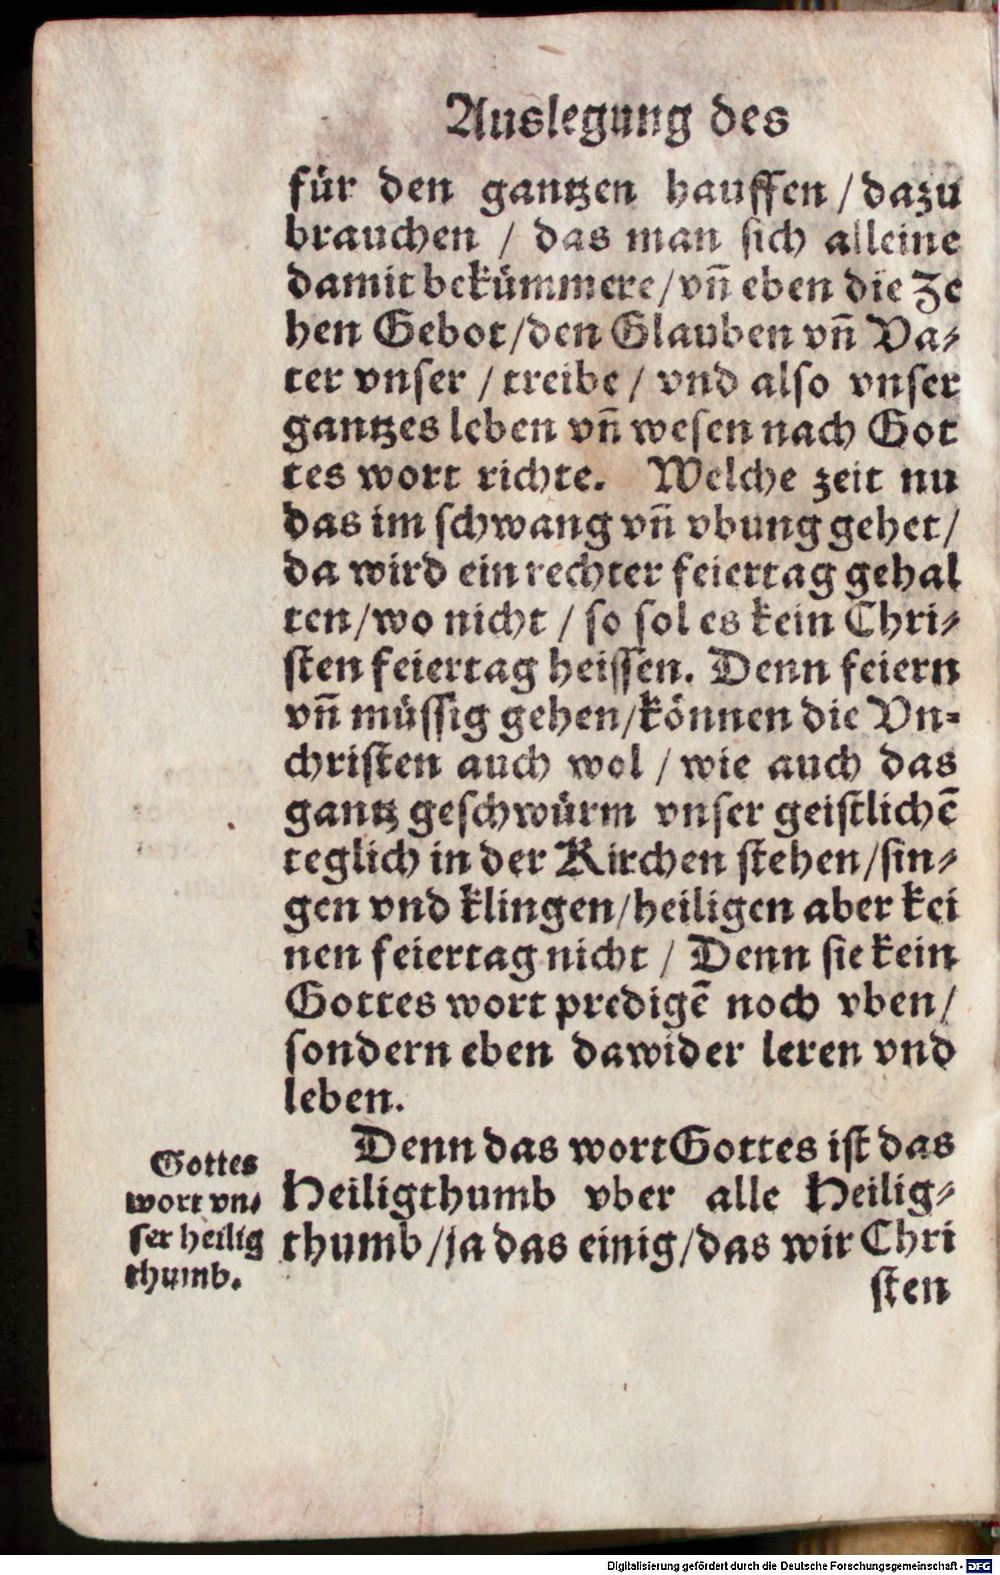 Auslegung des
für den gantzen hauffen / dazu
brauchen / das man sich alleine
damit bekümmere/vñ eben die Ze
hen Gebot/den Glauben vñ Va⸗
ter vnser / treibe / vnd also vnser
gantzes leben vñ wesen nach Got
tes wort richte. Welche zeit nu
das im schwang vñ vbung gehet/
da wird ein rechter feiertag gehal
ten/wo nicht / so sol es kein Chri⸗
sten feiertag heissen. Denn feiern
vñ müssig gehen/können die Vn⸗
christen auch wol / wie auch das
gantz geschwürm vnser geistlichẽ
teglich in der Kirchen stehen/sin⸗
gen vnd klingen/heiligen aber kei
nen feiertag nicht / Denn sie kein
Gottes wort predigẽ noch vben/
sondern eben dawider leren vnd
leben.
Denn das wort Gottes ist das
Heiligthumb vber alle Heilig⸗
thumb/ja das einig/das wir Chri
sten
Gottes
wort vn⸗
ser heilig
thumb.
Digitalisierung gefördert durch die Deutsche Forschungsgemeinschaft - DFG